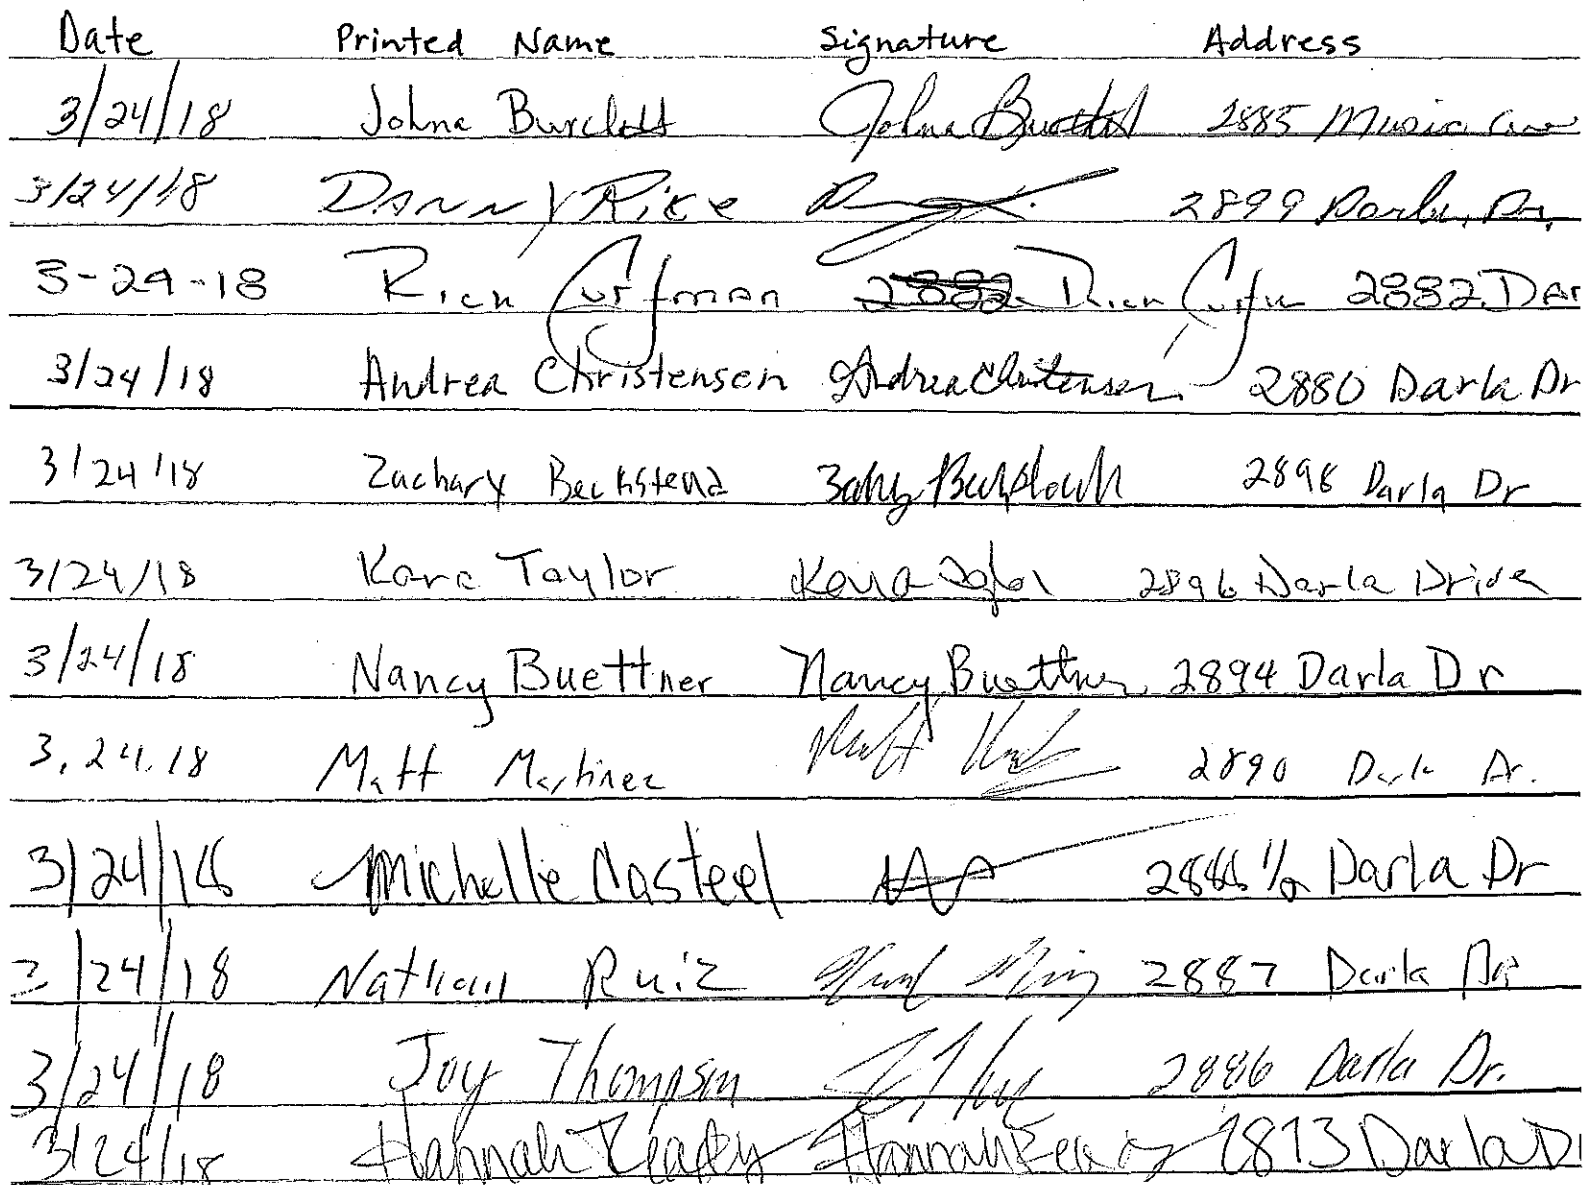 Date Printed Name Signature Address
3/24/18 Johna Johna 2885 Music Ave
3/24/18 DANNY Rice 2899 Darla Dr.
3-24-18 Rick Curfman 2882 Rick 2882 Dar
3/24/18 Andrea Christensen Andrea Christensen 2880 Darla Dr
3/24/18 Zachary Beckstead 2898 Darla Dr
3/24/18 Kara Taylor Kara Taylor 2896 Darla Drive
3/24/18 Nancy Buettner Nancy Buettner 2894 Darla Dr
3.24.18 Matt Martinez Matt 2890 Darla Dr.
3/24/18 Michelle Casteel 2888 1/2 Darla Dr
3/24/18 Nathan Ruiz 2887 Darla Dr
3/24/18 Joy Thompson 2886 Darla Dr.
3/24/18 Hannah Hannah 2873 Darla Dr